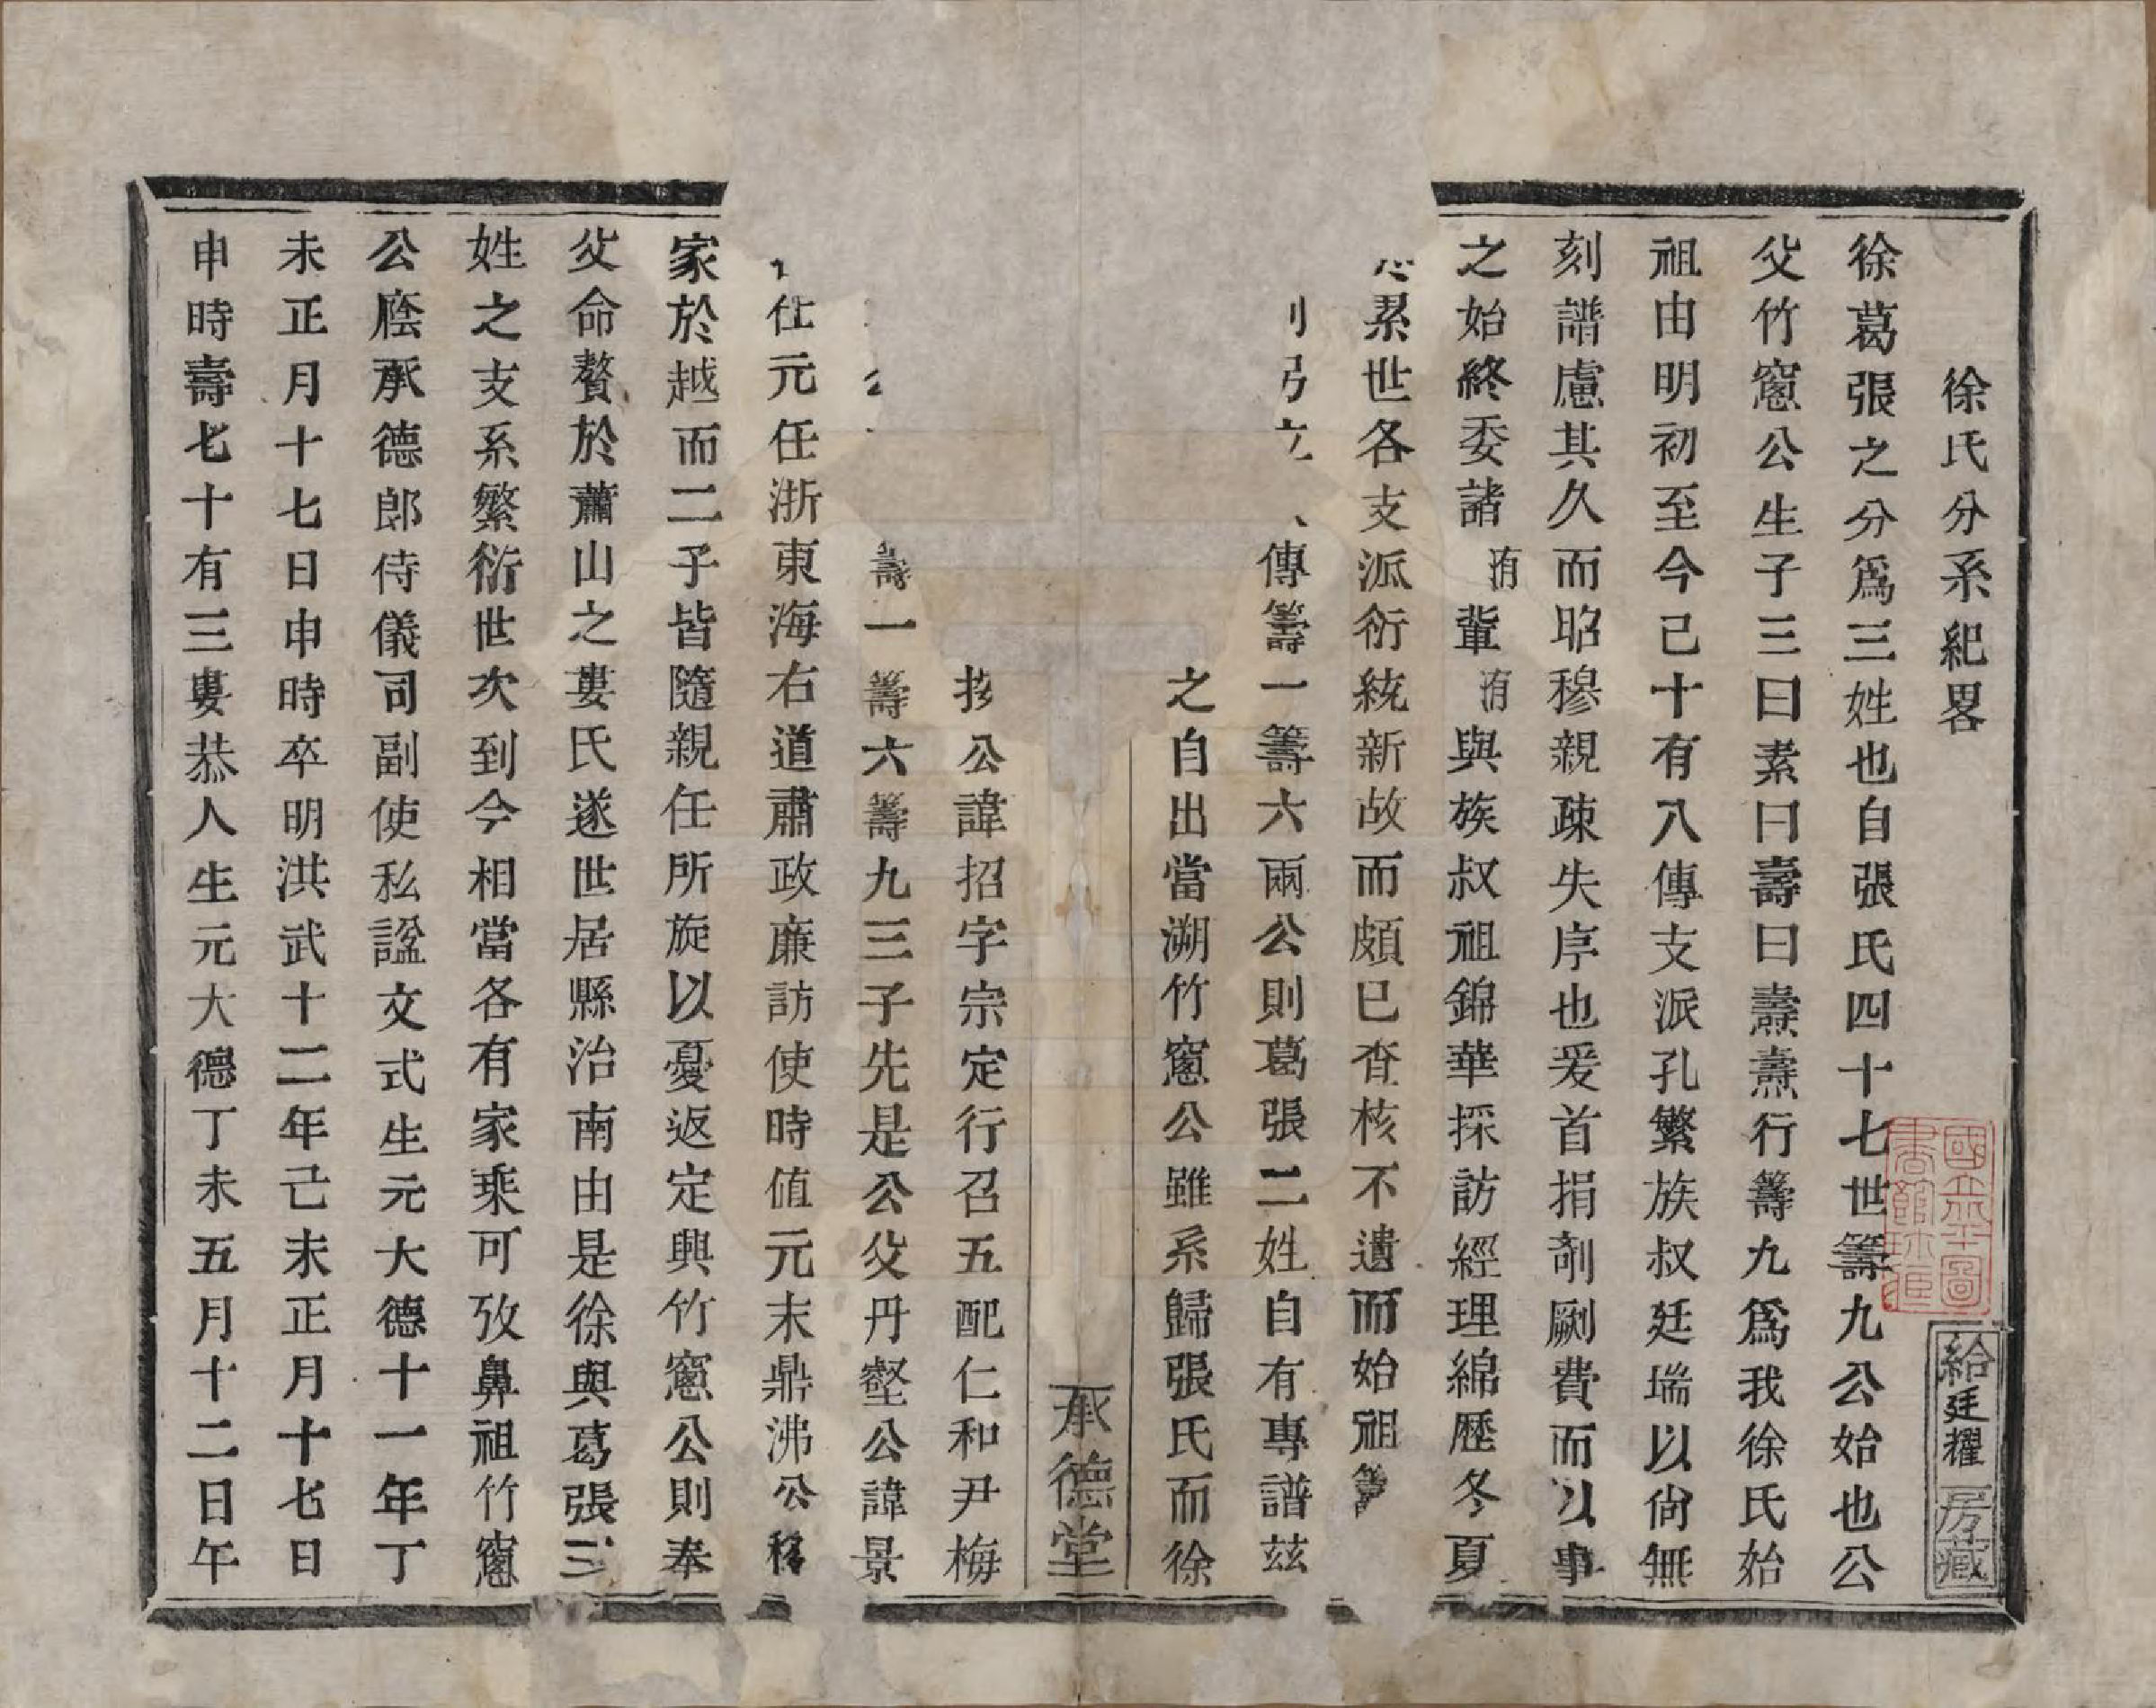 徐氏分系紀畧
徐葛張之分爲三姓也自張氏四十七世籌九公始也公
父竹窻公生子三曰素曰壽曰燾燾行籌九爲我徐氏始
祖由明初至今已十有八傳支派孔繁族叔廷瑞以尙無
刻譜慮其久而昭穆親疎失序也爰首捐剞劂費而以事
之始終委諸洧輩洧與族叔祖錦華採訪經理綿歷冬夏
累世各支派衍統新故而頗已查核不遺而始祖籌
傳籌一籌六兩公則葛張二姓自有專譜茲
之自出當溯竹窻公雖系歸張氏而徐
承德堂
按公諱招字宗定行召五配仁和尹梅
壽一籌六籌九三子先是公父丹壑公諱景
仕元任浙東海右道肅政廉訪使時值元末鼎沸公移
家於越而二子皆隨親任所旋以憂返定興竹窻公則奉
父命贅於蕭山之婁氏遂世居縣治南由是徐與葛張三
姓之支系繁衍世次到今相當各有家乘可攷鼻祖竹窻
公廕承德郎侍儀司副使私諡文式生元大德十一年丁
未正月十七日申時卒明洪武十二年己未正月十七日
申時壽七十有三婁恭人生元大德丁未五月十二日午
國立北平圖書館珍藏
給廷耀房藏